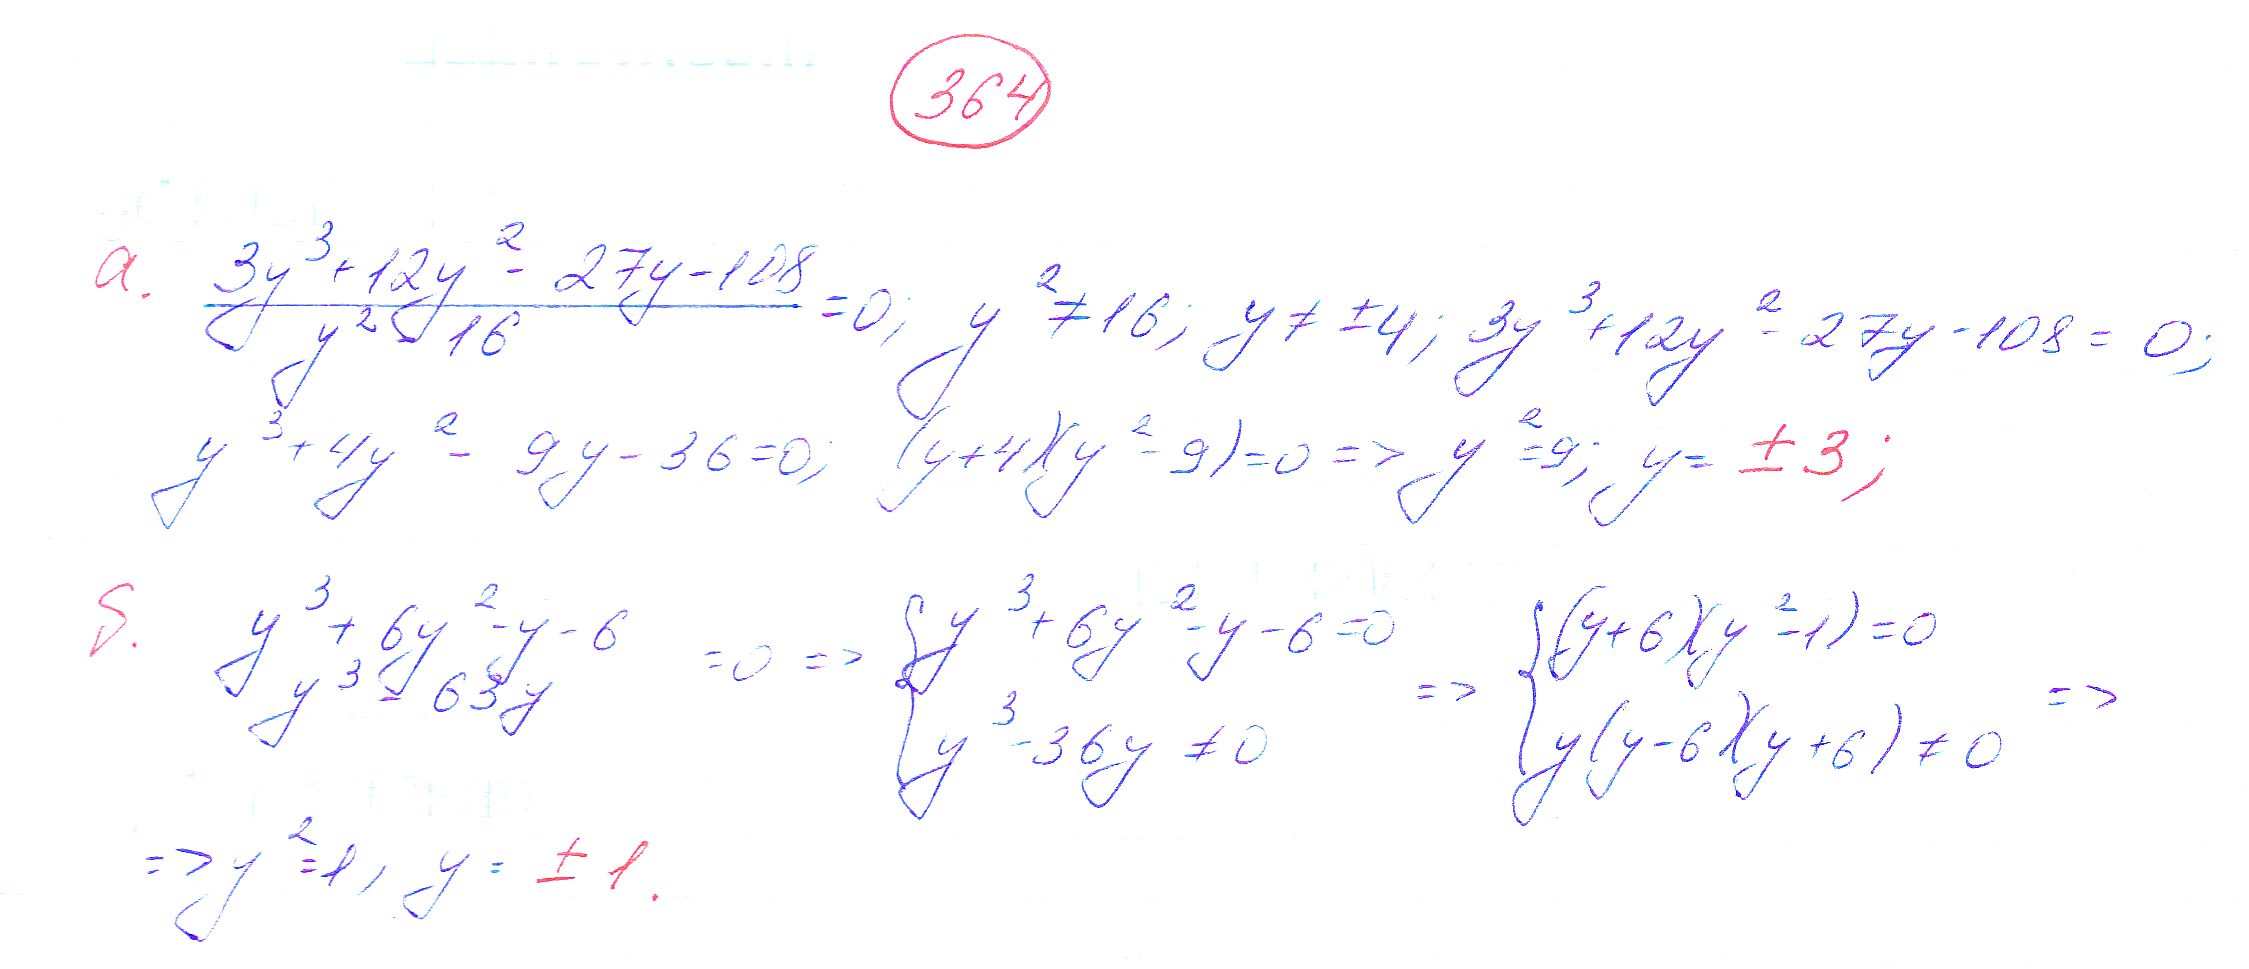 364
а. 3y³+12y²-27y-108
y²-16 =0; y²≠16; y≠±4; 3y³+12y²-27y-108=0;
y³+4y²-9y-36=0; (y+4)(y²-9)=0 => y²=9; y=±3;
б. y³+6y²-y-6 =0 => { y³+6y²-y-6=0 => { (y+6)(y²-1)=0 =>
y³-63y y³-36y≠0 y(y-6)(y+6)≠0
=> y²=1, y=±1.